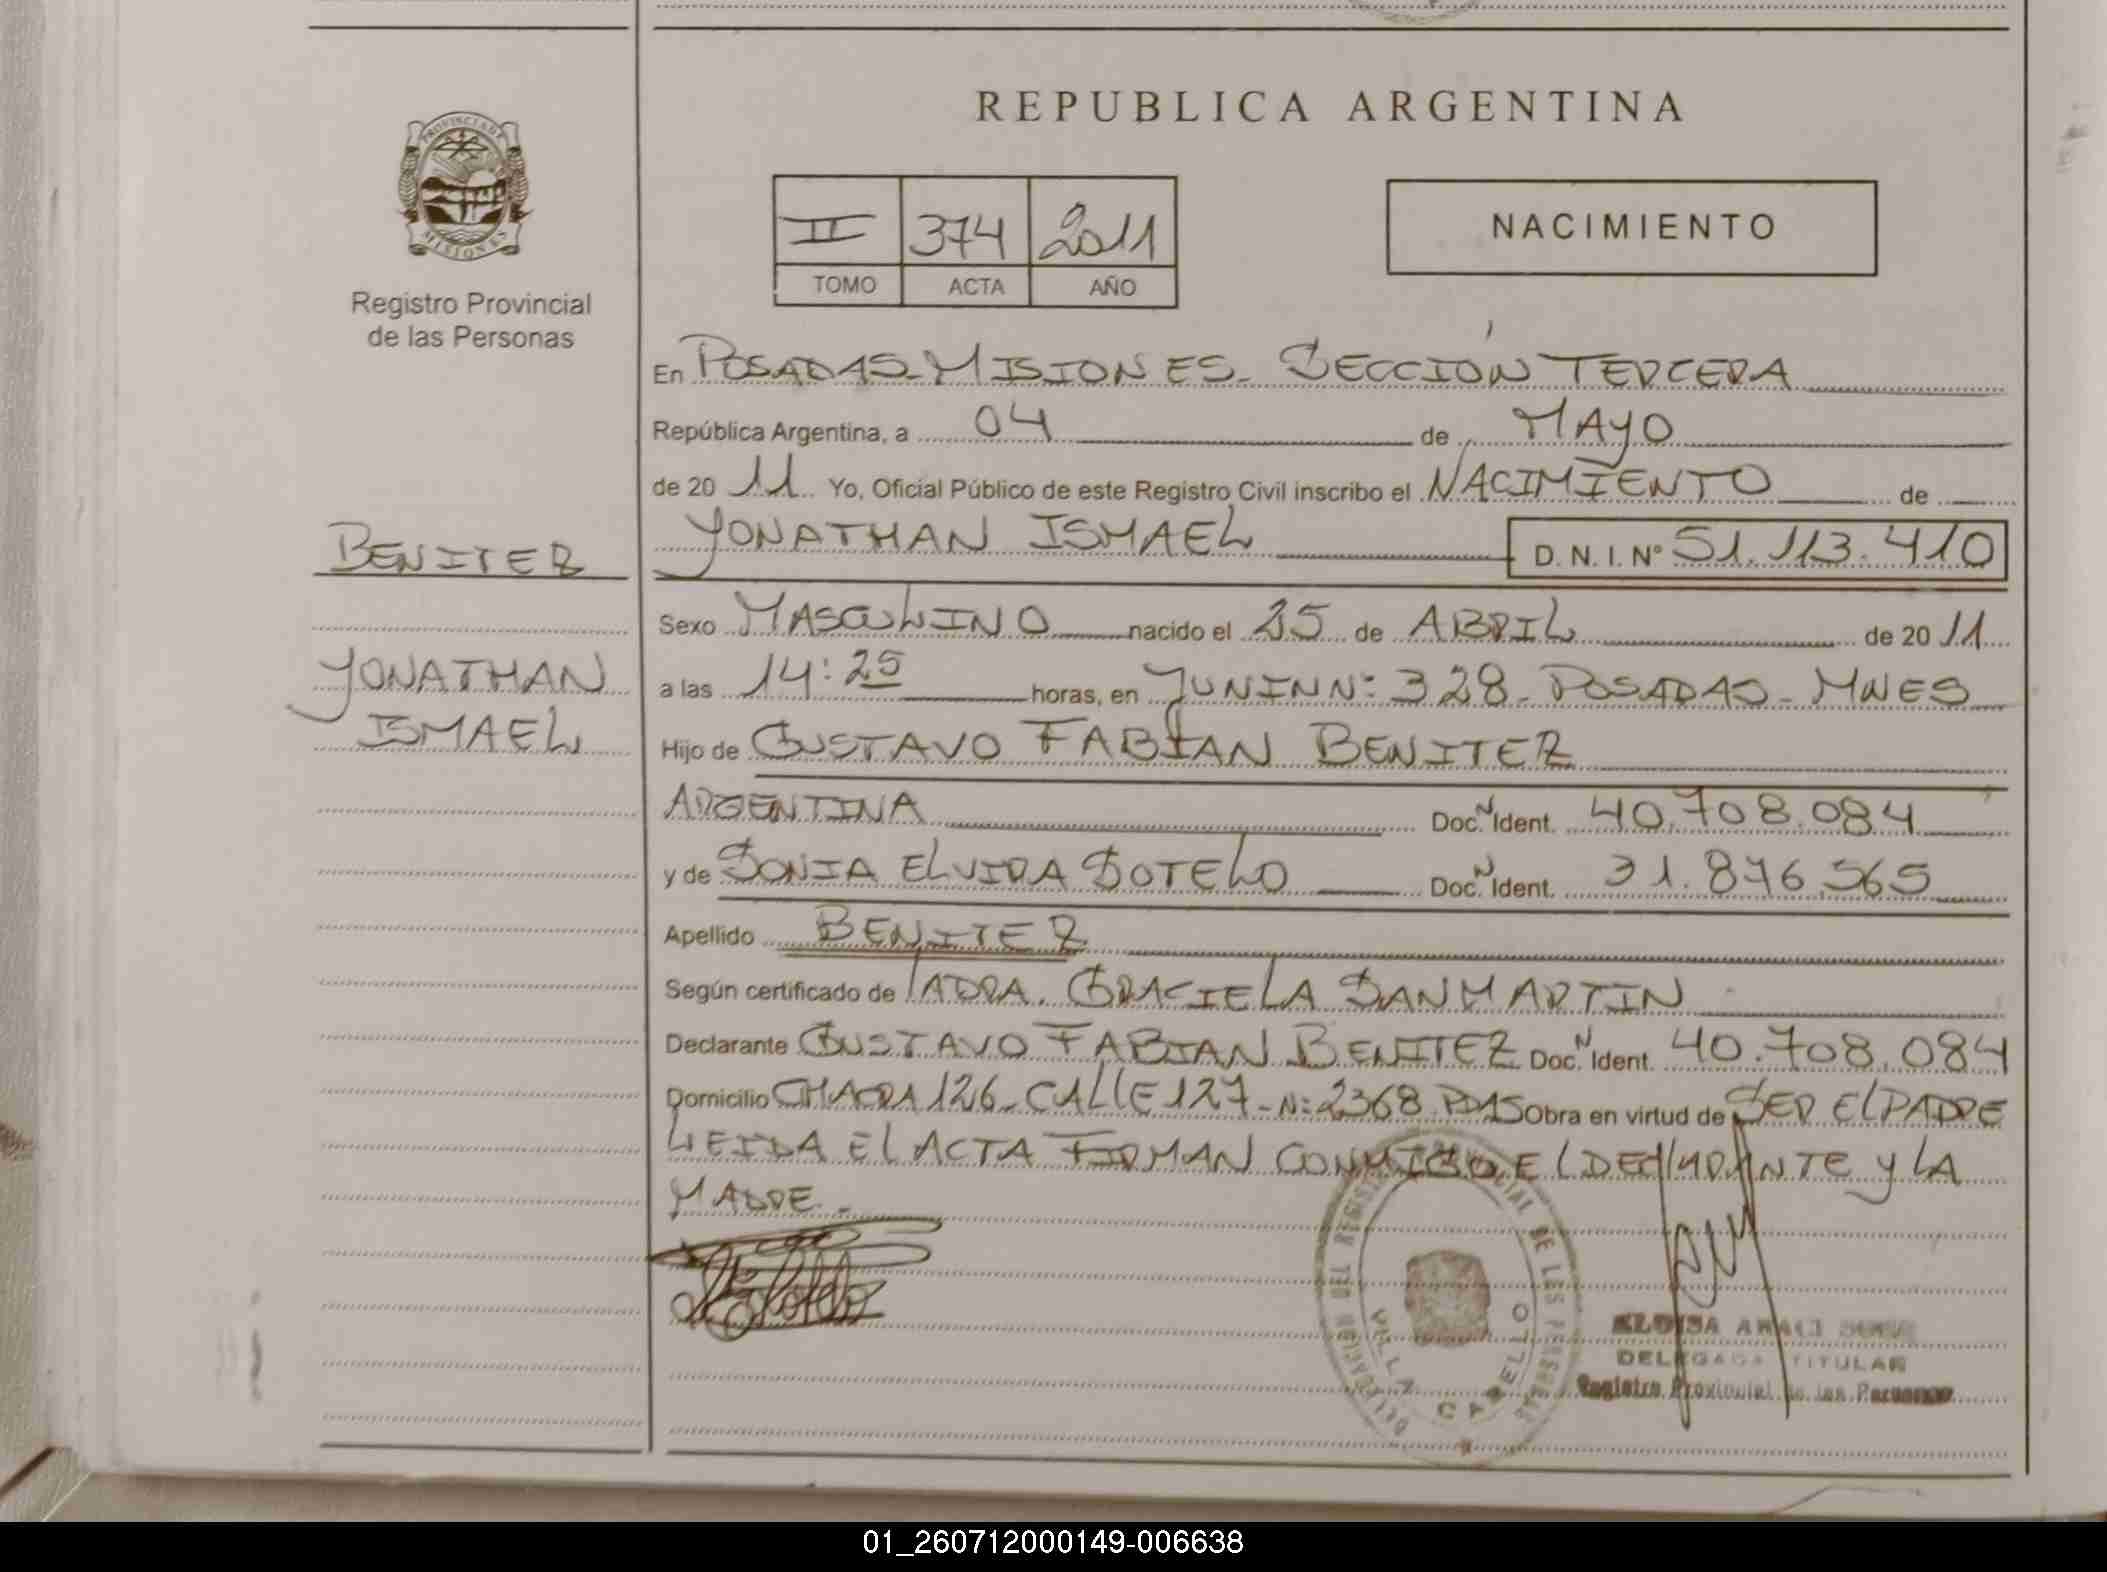 REPUBLICA ARGENTINA
PROVINCIA DE
MISIONES
Registro Provincial
de las Personas
II 374 2011
TOMO ACTA AÑO
NACIMIENTO
En POSADAS-MISIONES- SECCIÓN TERCERA
República Argentina, a 04 de MAYO
de 20 11 Yo, Oficial Público de este Registro Civil inscribo el NACIMIENTO de
YONATHAN ISMAEL D. N. I. Nº 51.113.410
BENITEZ
Sexo MASCULINO nacido el 25 de ABRIL de 20 11
YONATHAN
ISMAEL
a las 14:25 horas, en JUNIN Nº: 328- POSADAS- MNES
Hijo de GUSTAVO FABIAN BENITEZ
ARGENTINA Doc. N Ident. 40.708.084
y de SONIA ELVIRA SOTELO Doc. N Ident. 31.876.565
Apellido BENITEZ
Según certificado de LADRA. GRACIELA SANMARTIN
Declarante GUSTAVO FABIAN BENITEZ Doc. N Ident. 40.708.084
Domicilio CHACRA 126- CALLE 127- Nº: 2368. PDAS Obra en virtud de SER EL PADRE
LEIDA EL ACTA FIRMAN CONMIGO EL DECLARANTE Y LA
MADRE.-
DELEGACION DEL REGISTRO PROVINCIAL DE LAS PERSONAS
VILLA CABELLO
DELEGADA TITULAR
Registro Provincial de las Personas
01_260712000149-006638